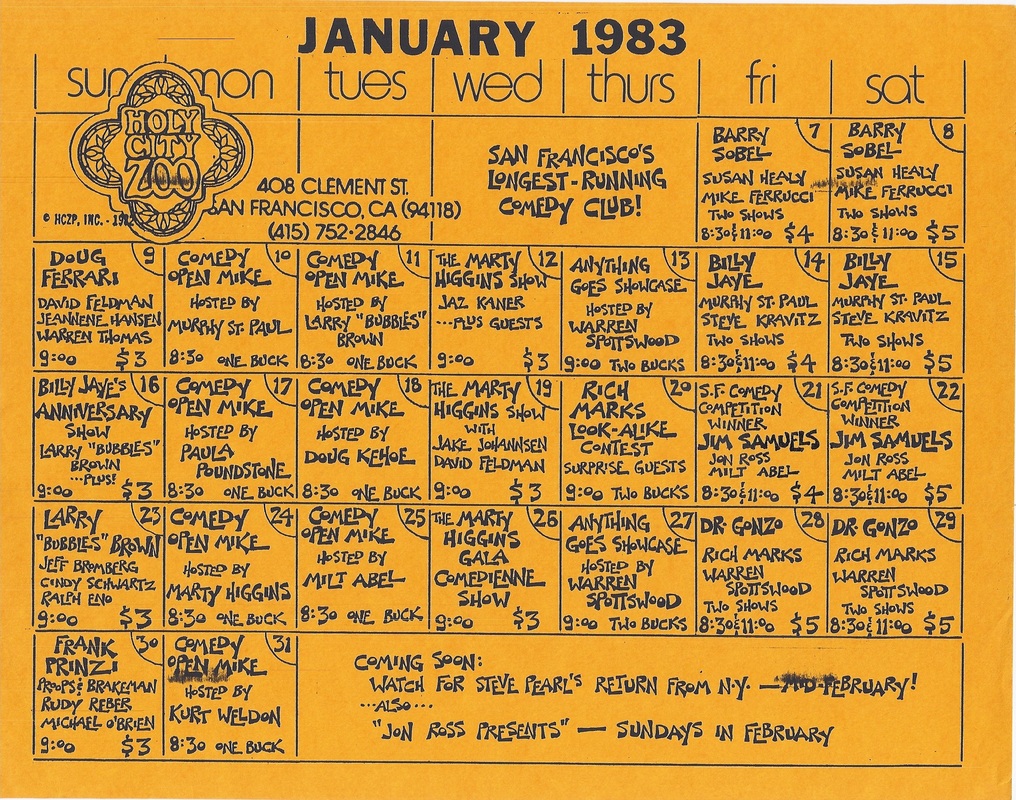 JANUARY 1983
sun mon tues wed thurs fri sat
HOLY
CITY
ZOO
© HCZP, INC. -
408 CLEMENT ST.
SAN FRANCISCO, CA (94118)
(415) 752-2846
SAN FRANCISCO'S
LONGEST-RUNNING
COMEDY CLUB!
7
BARRY
SOBEL
SUSAN HEALY
MIKE FERRUCCI
TWO SHOWS
8:30 & 11:00 $4
8
BARRY
SOBEL
SUSAN HEALY
MIKE FERRUCCI
TWO SHOWS
8:30 & 11:00 $5
9
DOUG
FERRARI
DAVID FELDMAN
JEANNENE HANSEN
WARREN THOMAS
9:00 $3
10
COMEDY
OPEN MIKE
HOSTED BY
MURPHY ST. PAUL
8:30 ONE BUCK
11
COMEDY
OPEN MIKE
HOSTED BY
LARRY "BUBBLES"
BROWN
8:30 ONE BUCK
12
THE MARTY
HIGGINS SHOW
JAZ KANER
...PLUS GUESTS
9:00 $3
13
ANYTHING
GOES SHOWCASE
HOSTED BY
WARREN
SPOTTSWOOD
9:00 TWO BUCKS
14
BILLY
JAYE
MURPHY ST. PAUL
STEVE KRAVITZ
TWO SHOWS
8:30 & 11:00 $4
15
BILLY
JAYE
MURPHY ST. PAUL
STEVE KRAVITZ
TWO SHOWS
8:30 & 11:00 $5
16
BILLY JAYE'S
ANNIVERSARY
SHOW
LARRY "BUBBLES"
BROWN
...PLUS!
9:00 $3
17
COMEDY
OPEN MIKE
HOSTED BY
PAULA
POUNDSTONE
8:30 ONE BUCK
18
COMEDY
OPEN MIKE
HOSTED BY
DOUG KEHOE
8:30 ONE BUCK
19
THE MARTY
HIGGINS SHOW
WITH
JAKE JOHANNSEN
DAVID FELDMAN
9:00 $3
20
RICH
MARKS
LOOK-ALIKE
CONTEST
SURPRISE GUESTS
9:00 TWO BUCKS
21
S.F. COMEDY
COMPETITION
WINNER
JIM SAMUELS
JON ROSS
MILT ABEL
8:30 & 11:00 $4
22
S.F. COMEDY
COMPETITION
WINNER
JIM SAMUELS
JON ROSS
MILT ABEL
8:30 & 11:00 $5
23
LARRY
"BUBBLES" BROWN
JEFF BROMBERG
CINDY SCHWARTZ
RALPH ENO
9:00 $3
24
COMEDY
OPEN MIKE
HOSTED BY
MARTY HIGGINS
8:30 ONE BUCK
25
COMEDY
OPEN MIKE
HOSTED BY
MILT ABEL
8:30 ONE BUCK
26
THE MARTY
HIGGINS
GALA
COMEDIENNE
SHOW
9:00 $3
27
ANYTHING
GOES SHOWCASE
HOSTED BY
WARREN
SPOTTSWOOD
9:00 TWO BUCKS
28
DR. GONZO
RICH MARKS
WARREN
SPOTTSWOOD
TWO SHOWS
8:30 & 11:00 $5
29
DR. GONZO
RICH MARKS
WARREN
SPOTTSWOOD
TWO SHOWS
8:30 & 11:00 $5
30
FRANK
PRINZI
PROPS & BRAKEMAN
RUDY REBER
MICHAEL O'BRIEN
9:00 $3
31
COMEDY
OPEN MIKE
HOSTED BY
KURT WELDON
8:30 ONE BUCK
COMING SOON:
WATCH FOR STEVE PEARL'S RETURN FROM N.Y. — MID-FEBRUARY!
...ALSO...
"JON ROSS PRESENTS" — SUNDAYS IN FEBRUARY